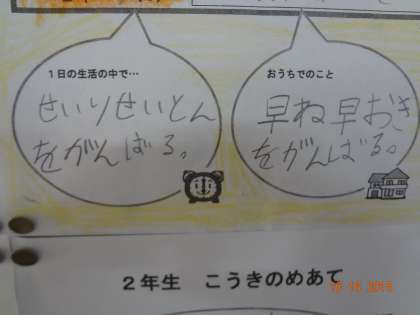 1日の生活の中で…
せいりせいとん
をがんばる。
おうちでのこと
早ね早おき
をがんばる。
2年生 こうきのめあて